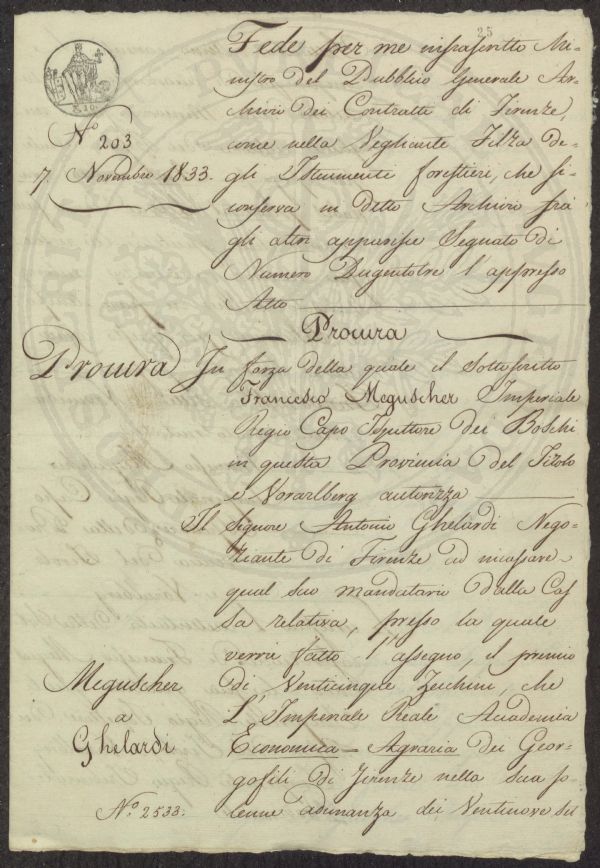 25
Fede per me infrascritto Mi=
nistro del Pubblico Generale Ar=
chivio dei Contratti di Firenze,
N.º 203
come nella Vegliante Filza de=
7 Novembre 1833.
gli Istrumenti forestieri, che si=
conserva in detto Archivio frà
gli altri apparisce Segnato di
Numero Dugentotre l'appresso
Atto
Procura
Procura In forza della quale il Sottoscritto
Francesco Meguscher Imperiale
Regio Capo Ispettore dei Boschi
in questa Provincia del Tirolo
e Vorarlberg autorizza
Il Signore Antonio Ghelardi Nego=
ziante di Firenze ad incassare=
qual suo mandatario dalla Cas
sa relativa, presso la quale
verrà fatto l'assegno, il premio
Meguscher
di Venticinque Zecchini, che
a
L'Imperiale Reale Accademia
Ghelardi
Economica = Agraria dei Geor=
gofili di Firenze nella sua so
N.º 2533.
lenne adunanza dei Ventinove del